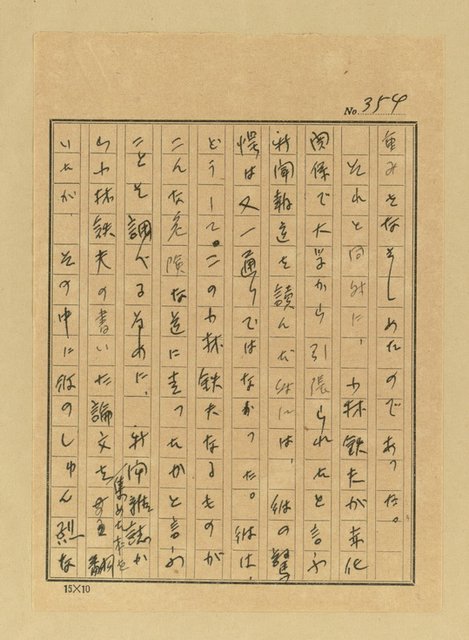 No. 354
重みをなさしめたのであった。
それと同時に、小林鉄夫が赤化
関係で大学から引張られたと言ふ
新聞報道を読んだ時には、彼の驚
愕は又一通りではなかった。彼は、
どうして、この小林鉄夫なるものが
こんな危険な道に走ったかと言ふ
ことを調べる為めに、新聞雑誌か
ら小林鉄夫の書いた論文を
集めた本を
翻
いたが、その中に彼のしゅん烈な
15×10